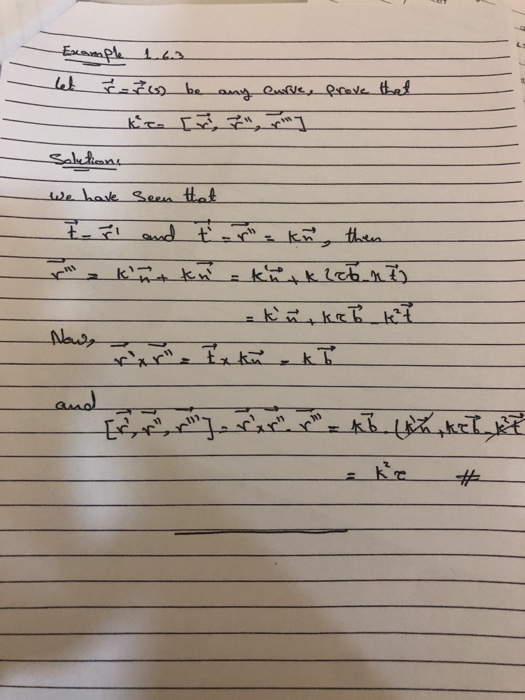 Example 1.6.3
Let r⃗ = r⃗(s) be any curve, prove that
k²τ = [r⃗', r⃗'', r⃗''']
Solution:
We have seen that
t⃗ = r⃗' and t⃗' = r⃗'' = kn⃗, then
r⃗''' = k'n⃗ + kn⃗' = k'n⃗ + k(τb⃗ - kt⃗)
= k'n⃗ + kτb⃗ - k²t⃗
Now,
r⃗' × r⃗'' = t⃗ × kn⃗ = kb⃗
and
[r⃗', r⃗'', r⃗'''] = r⃗' × r⃗'' · r⃗''' = kb⃗ · (k'n⃗ + kτb⃗ - k²t⃗
= k²τ #